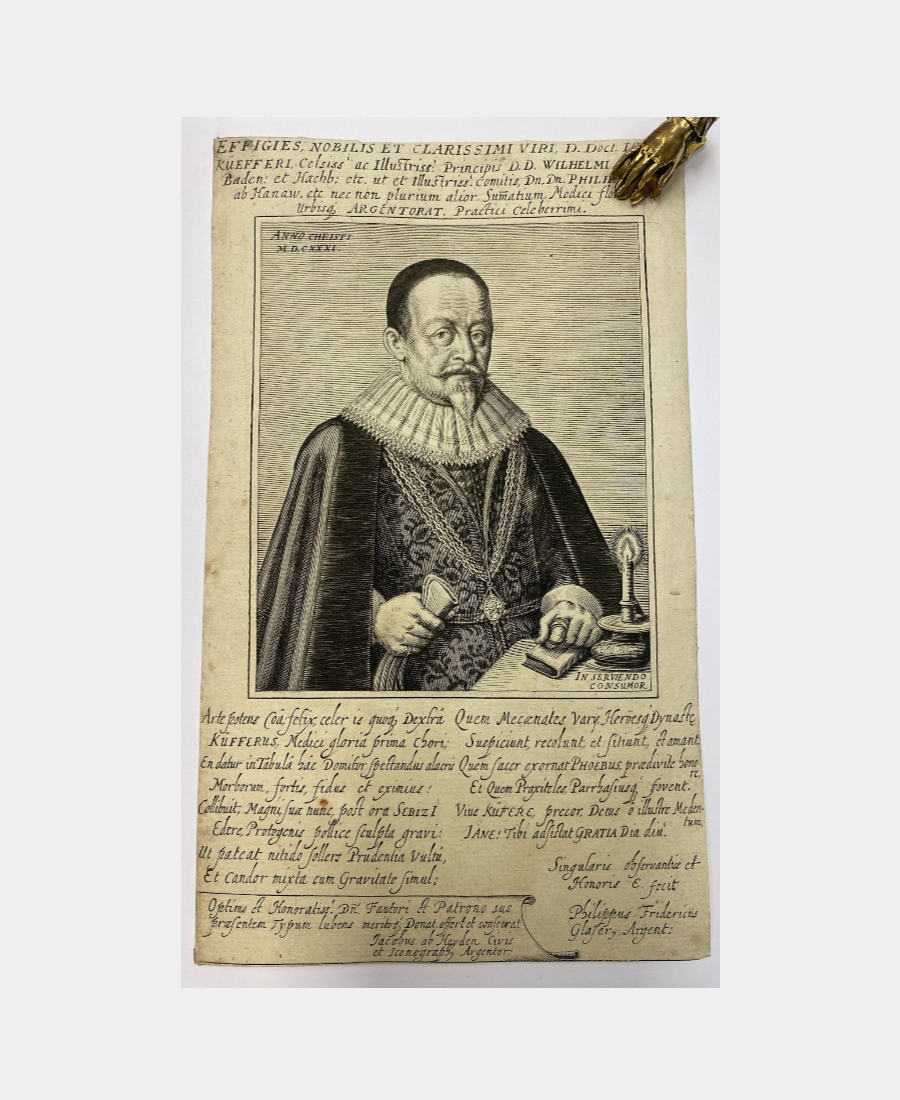 EFFIGIES, NOBILIS ET CLARISSIMI VIRI, D. Doct.
KÜEFFERI, Celsiss: ac Illustriss: Principis D.D. WILHELMI
Baden: et Hachb: etc. ut et Illustriss: Comitis, Dn. Dn. PHILIP
ab Hanaw. etc nec non plurium alior. Sum̃atium, Medici
Urbisq; ARGENTORAT. Practici Celeberrimi.
ANNO CHRISTI
M.D.CXXXI.
IN SERVIENDO
CONSUMOR
Arte potens Coâ, felix, celer is quoq; Dextrâ
KÜFFERUS, Medici gloria prima Chori;
En datur in Tabulâ hâc Domitor spectandus alacris
Morborum, fortis, fidus et eximius:
Collibuit, Magni sua nunc, post ora SEBIZI
Edere, Protogenis pollice sculpta gravi:
Ut pateat nitido sollers Prudentia Vultu,
Et Candor mixta cum Gravitate simul;
Quem Mecænates Varij, Heröesq; Dynastæ
Suspiciunt, recolunt, et sitiunt, et amant:
Quem sacer exornat PHOEBUS, prædivite honore,
Et Quem Praxiteles Parrhasiusq; fovent.
Vive KÜFERE, precor, Decus ô illustre Medentum,
JANE! Tibi adsistat GRATIA Dia diù.
Singularis observantiæ et
Honoris E. fecit
Philippus Fridericus
Glaser, Argent:
Optimo et Honoratiss: Dn̄. Fautori et Patrono suo
præsentem Typum lubens meritoq; Donat, offert et consecrat
Jacobus ab Heyden Civis
et Iconograph9 Argentor: